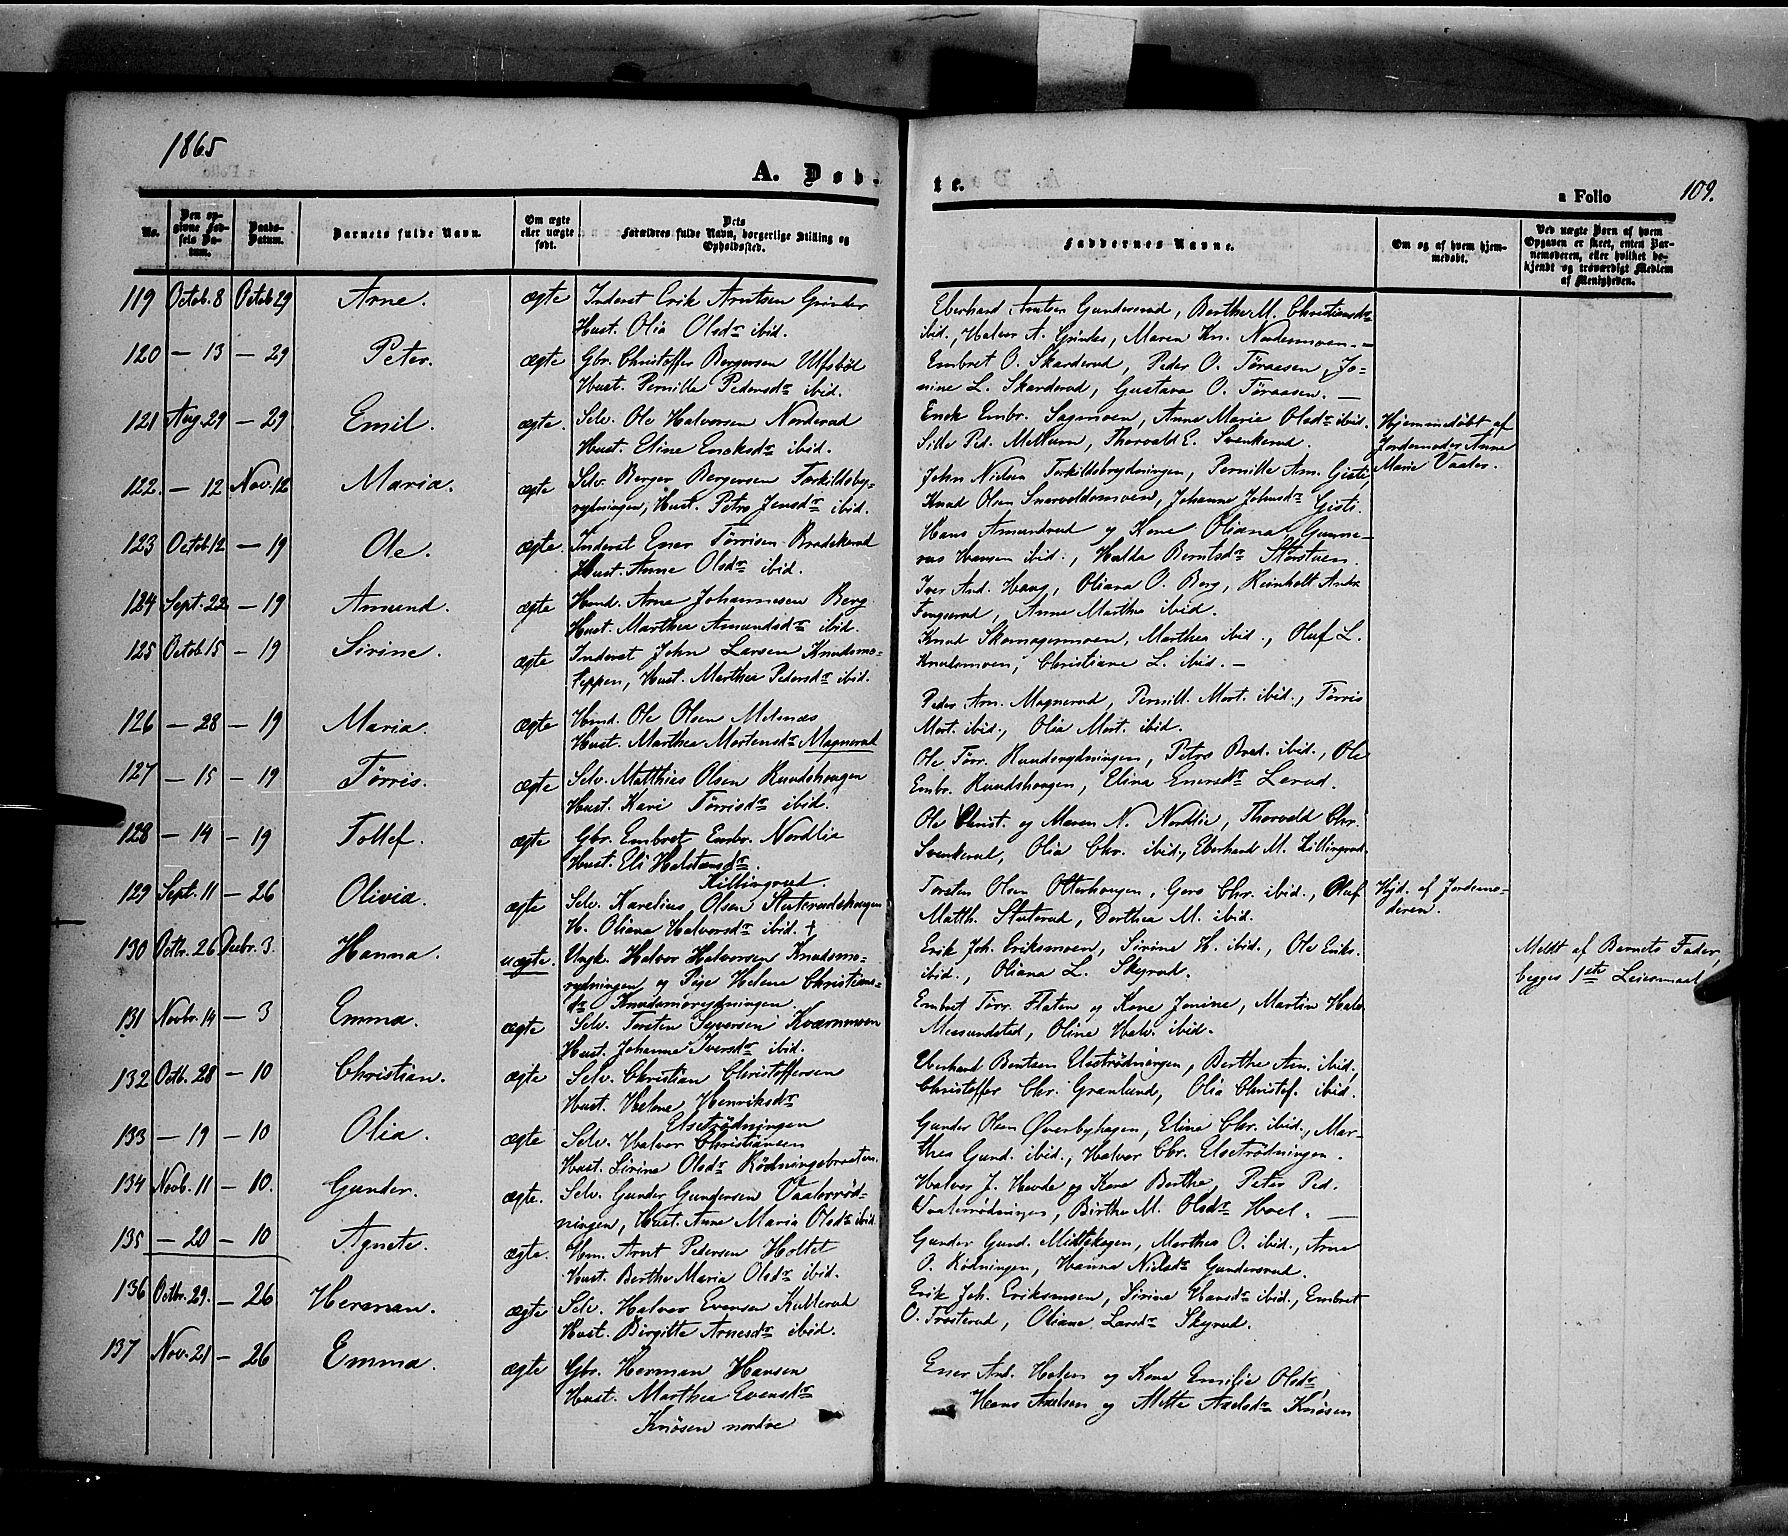 1865
A. Døb-
te.
a Folio 109.
No.
Den op-
givne Fød-
sels Da-
tum.
Daabs-
Datum.
Barnets fulde Navn.
Om ægte
eller uægte
født.
Dets
Forældres fulde Navn, borgerlige Stilling og
Opholdssted.
Faddernes Navne.
Om og af hvem hjem-
medøbt.
Ved uægte Børn af hvem
Opgaven er skeet, enten Bar-
nemoderen, eller hvilket be-
kjendt og troværdigt Medlem
af Menigheden.
119 Octob. 8 Octob 29 Arne. ægte Inderst Erik Arntsen Grinder
Hust. Olia Olsdr ibid.
Eberhard Arntsen Gundersrud, Berthe M. Christiansdr
ibid., Halvor A. Grinder, Maren Kn. Nordermoen.—
120 — 13 — 29 Peter. ægte Gbr. Christoffer Bergersen Ulfsbøl
Hust. Pernille Pedersdr ibid.
Embret O. Skarderud, Peder O. Tøraasen, Jo-
nine L. Skarderud, Gustava O. Tøraasen. —
121 Aug. 29 — 29 Emil. ægte. Selv. Ole Halvorsen Norderud
Hust. Eline Ericksdr ibid.
Erick Embr. Sagmoen, Anne Marie Olsdr ibid.
Sille Ped. Mellum, Thorvald E. Svenkerud.
Hjemmedøbt af
Jordemoder Anne
Marie Vaaler.
122. — 12 Nov. 12 Maria. ægte Selv. Berger Bergersen Torkildsby-
rydningen, Hust. Petra Jensdr ibid.
John Nielsen Torkildsbrydningen, Pernille Am. Gisti,
Knud Olsen Snarveldsmoen, Johanne Johnsdr Gisti.
123 Octob 12 — 19 Ole. ægte. Inderst Ener Tørrisen Bradskerud
Hust. Anne Olsdr ibid.
Hans Amundrud og Kone Oliana, Gunne-
rus Hansen ibid., Hulda Berntsdr Storstuen.
124 Sept. 22 — 19 Amund. ægte Hmd. Arne Johannesen Berg
Hust. Marthea Amundsdr ibid.
Iver And. Haug, Oliana O. Berg, Reinholt Andr.
Fongerud, Anne Marthe ibid.
125 Octob 15 — 19 Sirine. ægte Inderst John Larsen Knudsmo-
teppen, Hust. Marthea Pedersdr ibid.
Knud Skomagermoen, Marthea ibid., Oluf L.
Knudsmoen, Christiane L. ibid. —
126 — 28 — 19 Maria. ægte Hmd. Ole Olsen Melnæs
Hust. Marthea Mortensdr Magnerud
Peder Am. Magnerud, Pernill. Mort. ibid., Tørris
Mort. ibid., Olia Mort. ibid.
127 — 15 — 19 Tørris. ægte Selv. Matthias Olsen Rundshougen
Hust. Kari Tørrisdr ibid.
Ole Tørr. Rundsrydningen, Petro Bred. ibid., Ole
Embr. Rundshougen, Elina Enersdr Lerud.
128 — 14 — 19 Tollef. ægte Gbr. Embret Embr. Nordlia
Hust. Eli Halstensdr
Killingrud.
Ole Christ. og Maren N. Nordlie, Thorvald Chr.
Svenkerud, Olia Chr. ibid., Eberhard M. Killingrud.
129 Sept. 11 — 26 Olivia. ægte Selv. Karelius Olsen Sluterudshougen
H. Oliana Halvorsdr ibid. †
Torsten Olsen Otterhougen, Goro Chr. ibid., Oluf
Matth. Sluterud, Dorthea M. ibid.
Hjd. af Jordemo-
deren.
130 Octbr. 26 Decbr. 3. Hanna. uægte. Ungk. Halvor Halvorsen Knudsmo-
rydningen og Pige Helene Christians-
dr Knudsmorydningen.
Erik Joh. Eriksmoen, Sirine H. ibid., Ole Eriks.
ibid., Oliana L. Skyrud.
Meldt af Barnets Fader,
begges 1ste Leiermaal
131 Novbr. 14 — 3 Emma. ægte Selv. Torsten Syversen Kværnmoen
Hust. Johanne Iversdr ibid.
Embret Tørr. Flaten og Kone Jonine, Martin Halv.
Moesundsted, Oline Halv. ibid.
132 Octb. 28 — 10 Christian. ægte Selv. Christian Christoffersen
Hust. Helene Henriksdr
Elsetrødningen
Eberhard Berntsen Elsetrødningen, Berthe Am. ibid,
Christoffer Chr. Granlund, Olia Christof. ibid.
133 — 19 — 10 Olia. ægte Selv. Halvor Christiansen
Hust. Sirine Olsdr Rødningsbraaten.
Gunder Olsen Øverbyhagen, Eline Chr. ibid., Mar-
thea Gund. ibid., Halvor Chr. Elsetrødningen.
134 Novb. 11 — 10. Gunder. ægte. Selv. Gunder Gundersen Vaalerrød-
ningen, Hust. Anne Maria Olsdr ibid.
Halvor J. Hovde og Kone Berthe, Peter Ped.
Vaalerrødningen, Birthe M. Olsdr Hoel. —
135 — 20 — 10 Agnete. ægte. Hm. Arnt Pedersen Holtet
Hust. Berthe Maria Olsdr ibid.
Gunder Gund. Mittskogen, Marthea O. ibid., Arne
O. Rødningen, Hanna Nielsdr Gundersrud.
136 Octbr. 29. — 26 Herman. ægte Selv. Halvor Evensen Kulterud
Hust. Birgitte Arnesdr ibid.
Erik Joh. Eriksmoen, Sirine Hansdr ibid., Embret
O. Trosterud, Oliane Larsdr Skyrud.
137 Nov. 21 — 26 Emma. ægte Gbr. Herman Hansen
Hust. Marthea Evensdr
Knøsen nordre
Ener And. Holen og Kone Emilie Olsdr
Hans Axelsen og Mette Axelsdr Knøsen